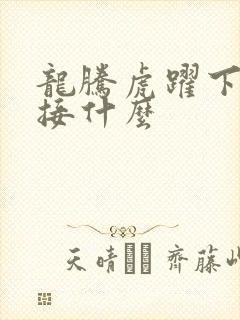 龍騰虎躍下
接什麼
天晴 齊藤山